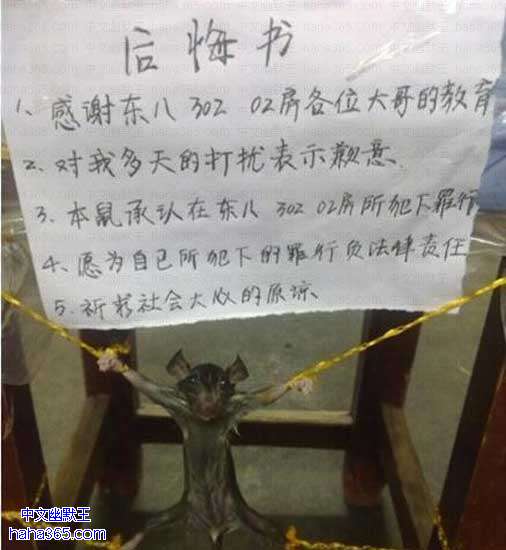 后悔书
1、感谢东八 302 02房各位大哥的教育
2、对我多天的打扰表示歉意、
3、本鼠承认在东八 302 02房所犯下罪行
4、愿为自己所犯下的罪行负法律责任
5、祈求社会大众的原谅、
中文幽默王
haha365.com